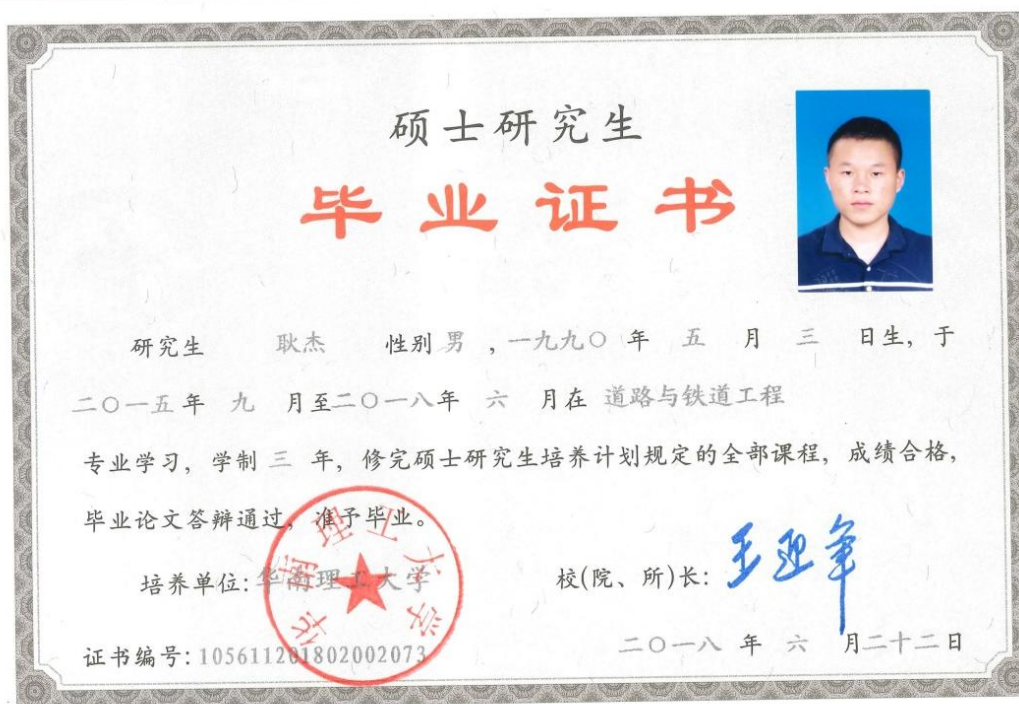 硕士研究生
毕业证书
研究生 耿杰 性别 男 ,一九九〇 年 五 月 三 日生,于
二〇一五年 九 月至二〇一八年 六 月在 道路与铁道工程
专业学习,学制 三 年,修完硕士研究生培养计划规定的全部课程,成绩合格,
毕业论文答辩通过,准予毕业。
华南理工大学
培养单位:华南理工大学
校(院、所)长:王迎军
证书编号:105611201802002073
二〇一八 年 六 月二十二日